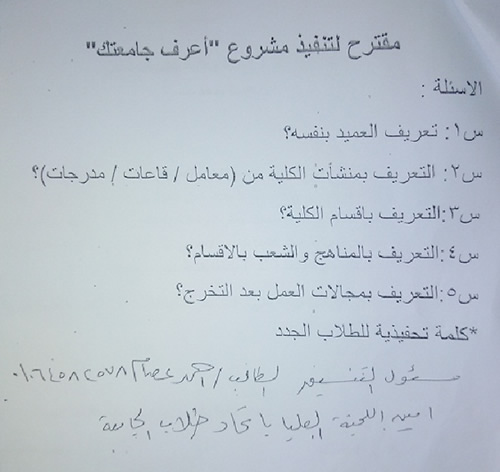 مقترح لتنفيذ مشروع "أعرف جامعتك"
الاسئلة :
س١: تعريف العميد بنفسه؟
س٢: التعريف بمنشأت الكلية من (معامل / قاعات / مدرجات)؟
س٣:التعريف باقسام الكلية؟
س٤:التعريف بالمناهج والشعب بالاقسام؟
س٥:التعريف بمجالات العمل بعد التخرج؟
*كلمة تحفيذية للطلاب الجدد
مسئول التنسيق الطالب / احمد عصام
امين اللجنة العليا باتحاد طلاب الجامعة